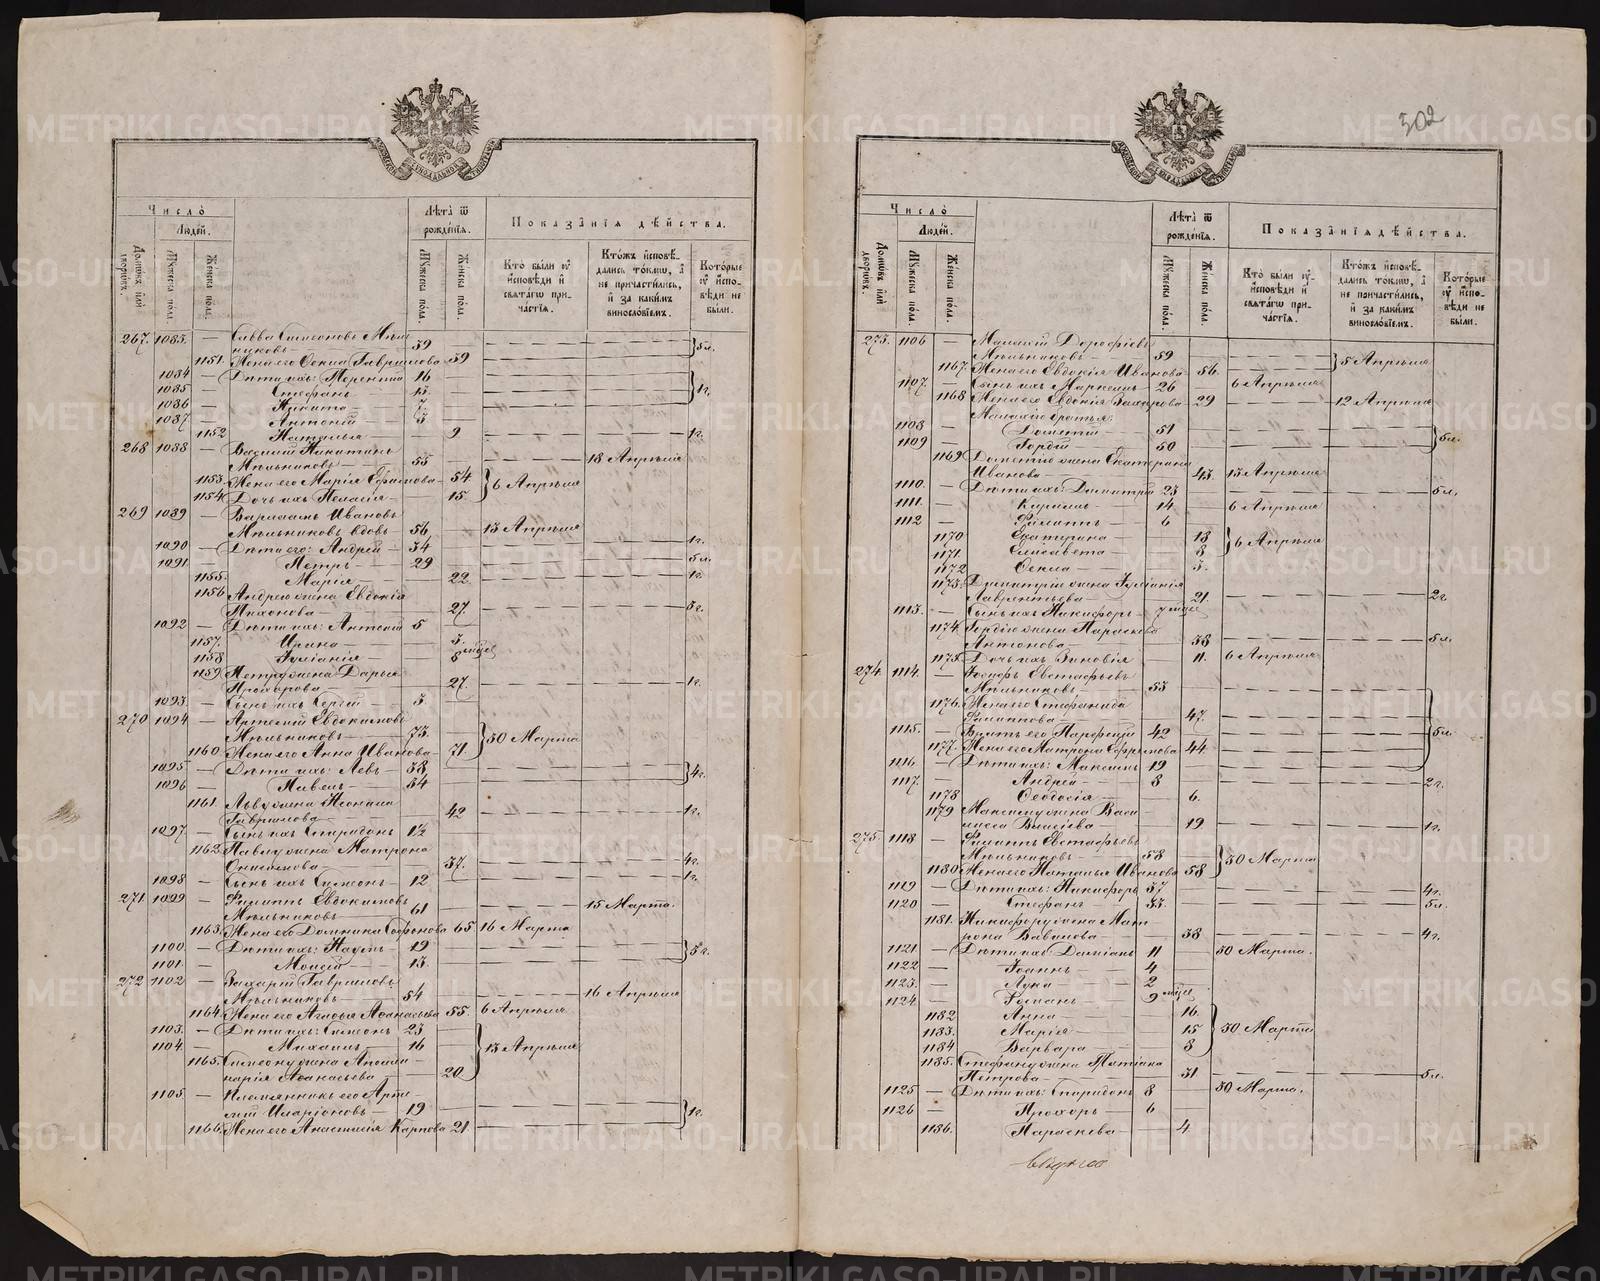 302
Число̀
Людéй.
Домѡвъ и҆лѝ дворѡвъ.
Мꙋ́жеска по́ла.
Же́нска по́ла.
Лѣ́та ѿ рожде́нїѧ.
Мꙋ́жеска по́ла.
Же́нска по́ла.
Показа̑нїѧ дѣ́йства.
Кто̀ бы́ли ᲂу҆ и҆́сповѣди и҆ свѧта́гѡ при-
ча́стїѧ.
Кто́жъ и҆сповѣ́-
дались то́кмѡ, а҆
не причасти́лись,
и҆ за каки́мъ
виносло́вїемъ.
Кото́рые
ᲂу҆ и҆́спо-
вѣди не
бы́ли.
267. 1083. — Савва Симеоновъ Мѣль-
никовъ — 59 5л.
1151. Жена его Ѳекла Гаврилова 59
1084 — Дѣти ихъ: Терентій 16
1085 — Стефанъ — 13. 1г.
1086 — Никита — 7.
1087 — Антоній — 3
1152 Наталья — 9 1г.
268 1088 — Василій Никитинъ
Мѣльниковъ — 55 18 Апрѣля
1153. Жена его Марія Ефимова — 54 6 Апрѣля
1154. Дочь ихъ Пелагія — 15
269 1089 — Варлаамъ Ивановъ
Мѣльниковъ вдовъ — 56 13 Апрѣля
1090 — Дѣти его: Андрей — 34 1г.
1091 — Петръ — 29 5л.
1155. Марія — 22. 1г.
1156 Андрею жена Евдокія
Тихонова — 27. 3г.
1092 — Дѣти ихъ: Антоній 5
1157. Ирина — 3.
1158 Іуліанія — 8 мѣсц.
1159. Петру жена Дарья
Прохорова — 27. 1г.
1093. — Сынъ ихъ Сергій — 3
270 1094 — Артемій Евдокимовъ
Мѣльниковъ — 73. 30 Марта
1160. Жена его Анна Иванова — 71.
1095 — Дѣти ихъ: Левъ — 38 4г.
1096 — Павелъ — 34
1161. Льву жена Неонила
Гаврилова — 42 1г.
1097 — Сынъ ихъ Спиридонъ 1½
1162. Павлу жена Матрона
Онисимова — 37. 4г.
1098 — Сынъ ихъ Симеонъ — 12 1г.
271 1099 — Филиппъ Евдокимовъ
Мѣльниковъ — 61 15 Марта.
1163. Жена его Домника Софонова 65 16 Марта
1100. — Дѣти ихъ: Наумъ — 19 3г.
1101. — Моисей — 13.
272 1102 — Захарій Гавриловъ
Мѣльниковъ — 54 16 Апрѣля
1164. Жена его Агафья Аѳанасьева 55. 6 Апрѣля
1103. — Дѣти ихъ: Симеонъ 23
1104. — Михаилъ — 16 13 Апрѣля
1165. Симеону жена Аполли-
нарія Аѳанасьева — 20
1105 — Племянникъ его Арте-
мій Иларіоновъ — 19 1г.
1166. Жена его Анастасія Карпова 21.
Число̀
Людéй.
Домѡвъ и҆лѝ дворѡвъ.
Мꙋ́жеска по́ла.
Же́нска по́ла.
Лѣ́та ѿ рожде́нїѧ.
Мꙋ́жеска по́ла.
Же́нска по́ла.
Показа̑нїѧ дѣ́йства.
Кто̀ бы́ли ᲂу҆
и҆́сповѣди и҆
свѧта́гѡ при-
ча́стїѧ.
Кто́жъ и҆сповѣ́-
дались то́кмѡ, а҆
не причасти́лись,
и҆ за каки́мъ
виносло́вїемъ.
Кото́рые
ᲂу҆ и҆́спо-
вѣди не
бы́ли.
273. 1106 — Малахій Дороѳеевъ
Мѣльниковъ — 59 5 Апрѣля
1167. Жена его Евдокія Иванова 56.
1107. — Сынъ ихъ Маркеллъ — 26 — 6 Апрѣля
1168 Жена его Евдокія Захарова 29 12 Апрѣля
Малахію братья:
1108 — Дометій — 51 5л.
1109 — Гордій — 50
1169 Дометію жена Екатерина
Иванова — 43. 13 Апрѣля
1110. — Дѣти ихъ: Димитрій 23 5л.
1111. — Кириллъ — 14 6 Апрѣля
1112 — Филиппъ — 6
1170 Екатерина — 18 6 Апрѣля
1171. Елисавета — 8
1172 Ѳекла — 3.
1173. Димитрію жена Іуліанія
Лаврентьева — 21. 2г
1113. — Сынъ ихъ Никифоръ — 7 мѣсц.
1174. Гордію жена Параскева
Антонова — 38 5л.
1175. Дочь ихъ Зиновія — 11. 6 Апрѣля
274. 1114. — Іосифъ Евстафьевъ
Мѣльниковъ — 53
1176. Жена его Стефанида
Филиппова — 47. 5л.
1115. — Братъ его Парфеній 42
1177. Жена его Матрона Ефремова 44
1116. — Дѣти ихъ: Максимъ 19
1117. — Андрей — 8 2г.
1178 Ѳеодосія — 6.
1179 Максиму жена Васи-
лисса Власіева — 19 1г.
275. 1118 — Филиппъ Евстафьевъ
Мѣльниковъ — 58 30 Марта
1180. Жена его Наталья Иванова 58
1119 — Дѣти ихъ: Никифоръ 37 4г.
1120 — Стефанъ — 33. 5л.
1181. Никифору жена Мат-
рона Вавилова — 38 4г.
1121. — Дѣти ихъ: Даміанъ 11 — 30 Марта.
1122 — Іоаннъ — 4
1123. — Лука — 2
1124. — Романъ — 9 мѣсц.
1182 Анна — 16.
1183. Марія — 15 30 Марта
1184 Варвара — 8
1185. Стефану жена Татіана
Петрова — 31 5л.
1125 — Дѣти ихъ: Спиридонъ 8 30 Марта.
1126 — Прохоръ — 6
1186. Параскева — 4